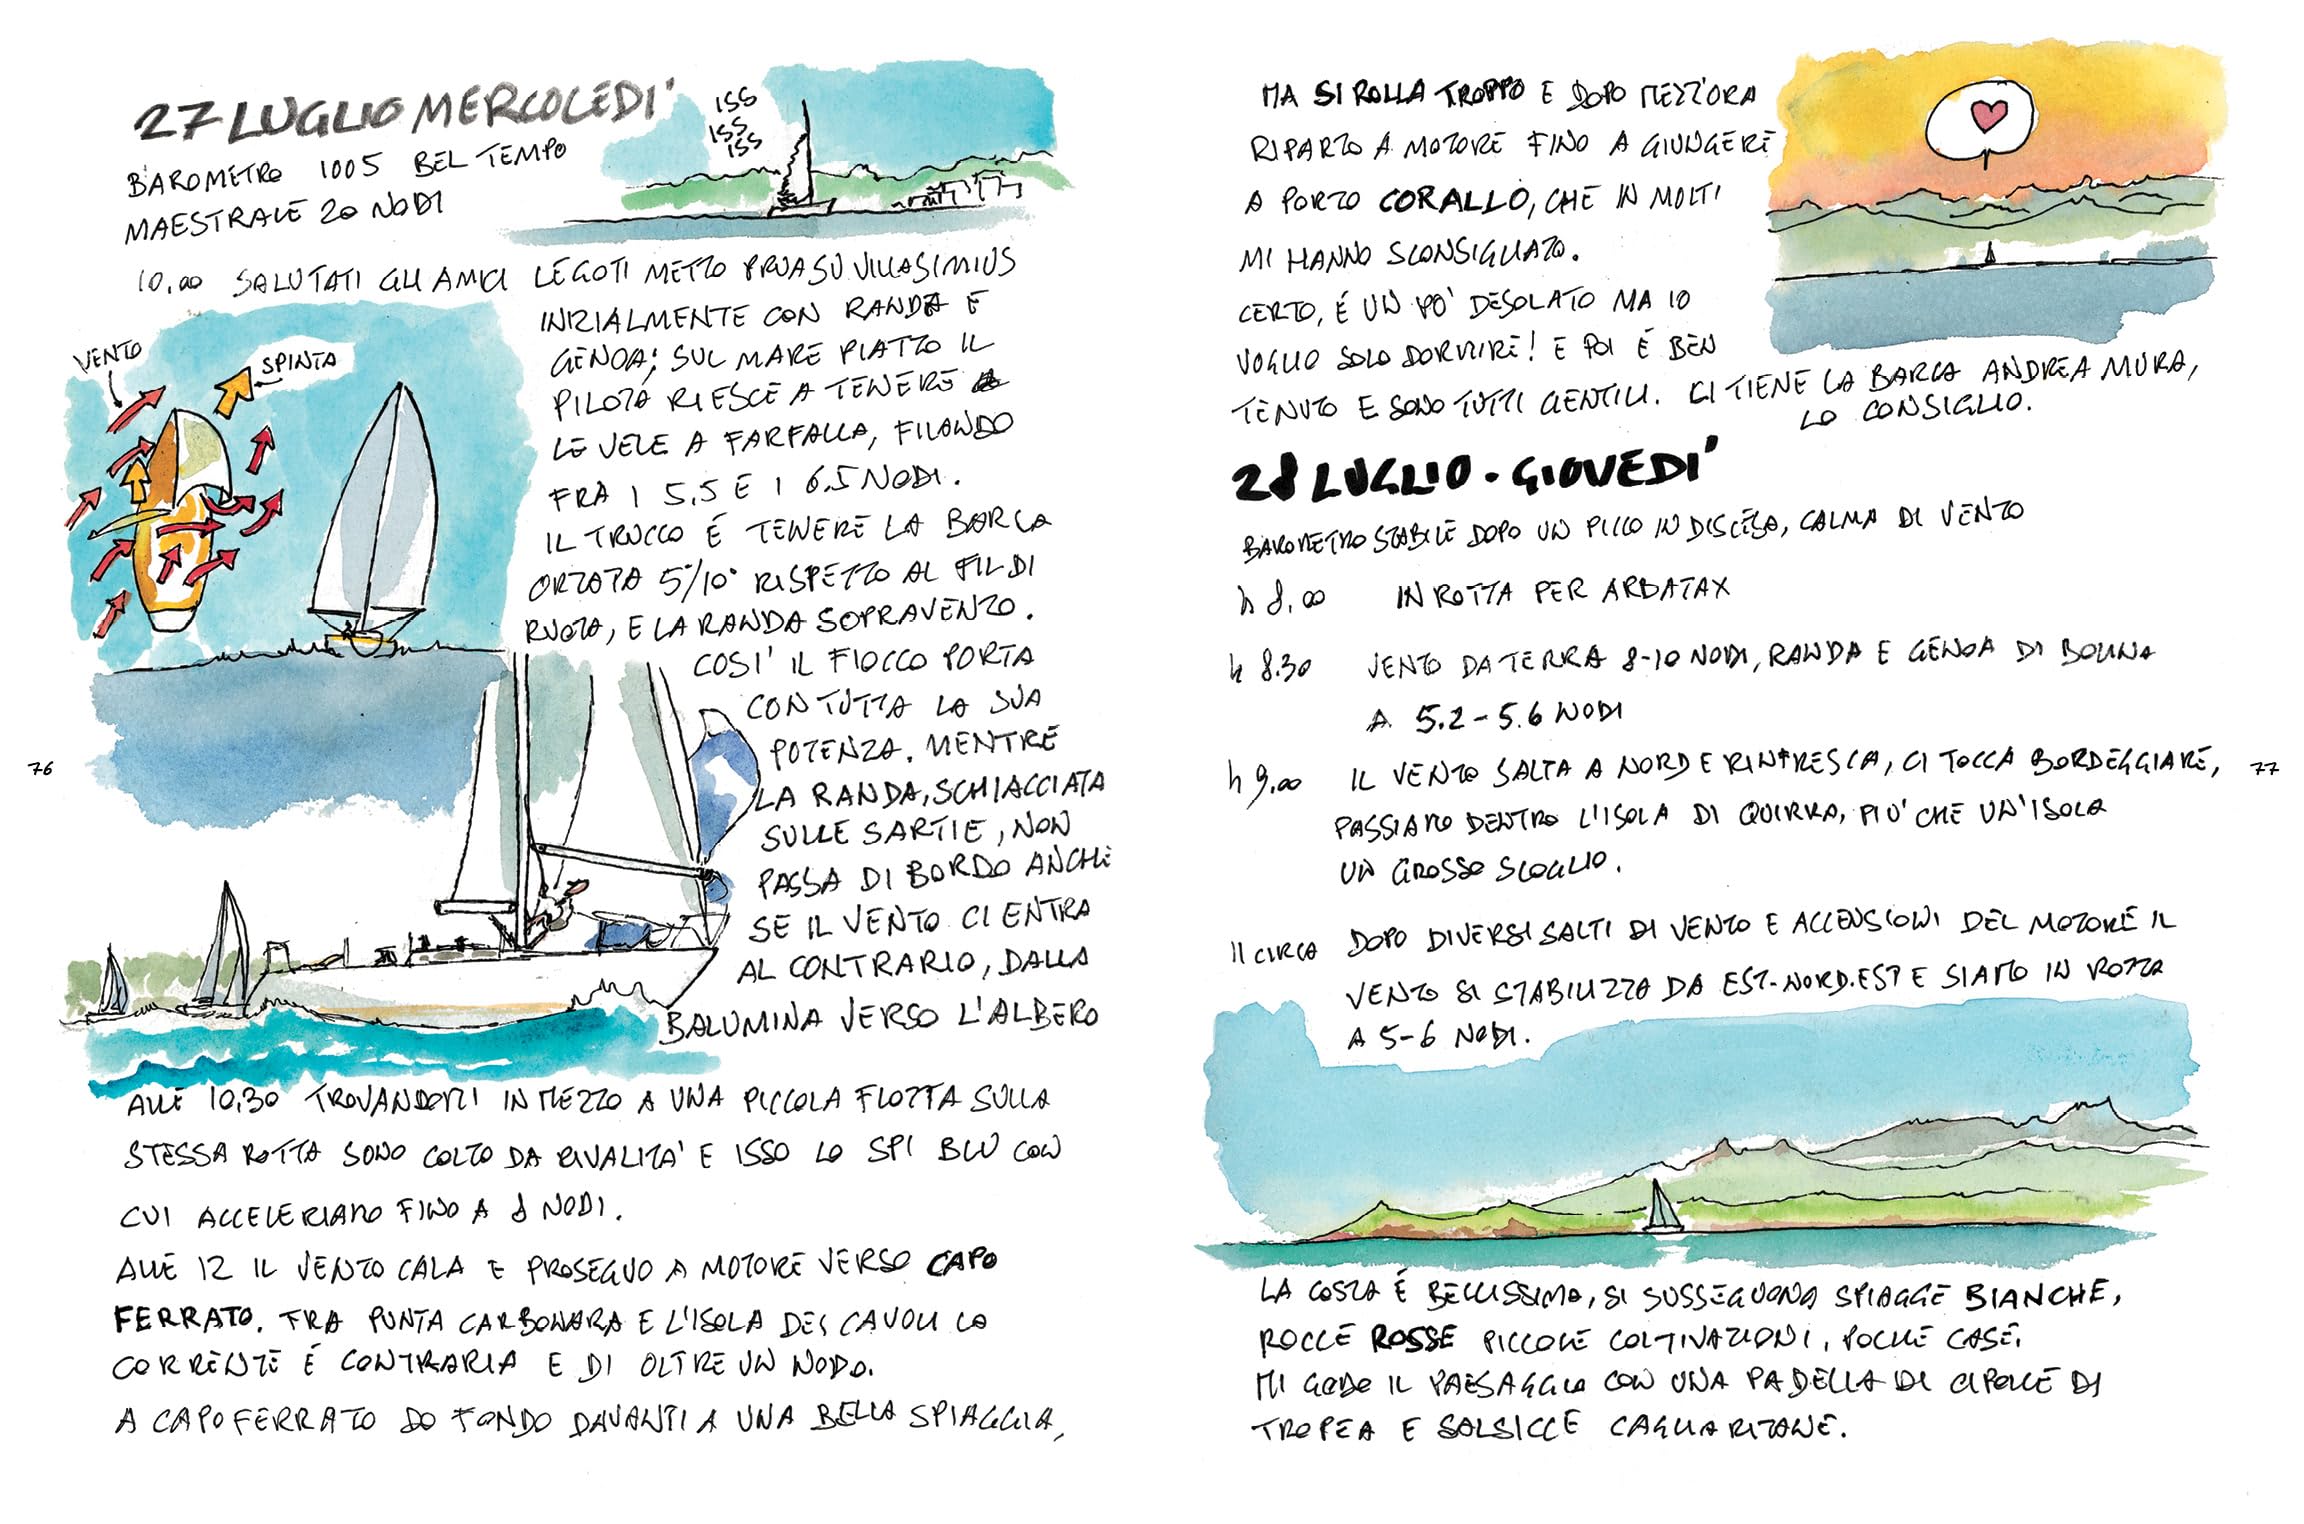 27 LUGLIO MERCOLEDI'
ISS
ISS
ISS
BAROMETRO 1005 BEL TEMPO
MAESTRALE 20 NODI
10.00 SALUTATI GLI AMICI LEGOTI METTO PRUA SU VILLASIMIUS
INIZIALMENTE CON RANDA E
GENOA; SUL MARE PIATTO IL
PILOTA RIESCE A TENERE
LE VELE A FARFALLA, FILANDO
FRA I 5.5 E I 6.5 NODI.
IL TRUCCO É TENERE LA BARCA
ORZATA 5°/10° RISPETTO AL FIL DI
RUOTA, E LA RANDA SOPRAVENTO.
COSI' IL FIOCCO PORTA
CON TUTTA LA SUA
POTENZA. MENTRE
LA RANDA, SCHIACCIATA
SULLE SARTIE, NON
PASSA DI BORDO ANCHE
SE IL VENTO CI ENTRA
AL CONTRARIO, DALLA
BALUMINA VERSO L'ALBERO
VENTO
SPINTA
ALLE 10.30 TROVANDOMI IN MEZZO A UNA PICCOLA FLOTTA SULLA
STESSA ROTTA SONO COLTO DA RIVALITA' E ISSO LO SPI BLU CON
CUI ACCELERIAMO FINO A 8 NODI.
ALLE 12 IL VENTO CALA E PROSEGUO A MOTORE VERSO CAPO
FERRATO. TRA PUNTA CARBONARA E L'ISOLA DEI CAVOLI LA
CORRENTE É CONTRARIA E DI OLTRE UN NODO.
A CAPO FERRATO DO FONDO DAVANTI A UNA BELLA SPIAGGIA,
76
MA SI ROLLA TROPPO E DOPO MEZZ'ORA
RIPARTO A MOTORE FINO A GIUNGERE
A PORTO CORALLO, CHE IN MOLTI
MI HANNO SCONSIGLIATO.
CERTO, É UN PO' DESOLATO MA IO
VOGLIO SOLO DORMIRE! E POI É BEN
TENUTO E SONO TUTTI GENTILI. CI TIENE LA BARCA ANDREA MURA,
LO CONSIGLIO.
28 LUGLIO - GIOVEDI'
BAROMETRO STABILE DOPO UN PICCO IN DISCESA, CALMA DI VENTO
h 8.00 IN ROTTA PER ARBATAX
h 8.30 VENTO DA TERRA 8-10 NODI, RANDA E GENOA DI BOLINA
A 5.2-5.6 NODI
h 9.00 IL VENTO SALTA A NORD E RINFRESCA, CI TOCCA BORDEGGIARE,
PASSIAMO DENTRO L'ISOLA DI QUIRRA, PIU' CHE UN'ISOLA
UN GROSSO SCOGLIO.
11 CIRCA DOPO DIVERSI SALTI DI VENTO E ACCENSIONI DEL MOTORE IL
VENTO SI STABILIZZA DA EST-NORD.EST E SIAMO IN ROTTA
A 5-6 NODI.
LA COSTA É BELLISSIMA, SI SUSSEGUONO SPIAGGE BIANCHE,
ROCCE ROSSE PICCOLE COLTIVAZIONI, POCHE CASE.
MI GODO IL PAESAGGIO CON UNA PADELLA DI CIPOLLE DI
TROPEA E SALSICCE CAGLIARITANE.
77